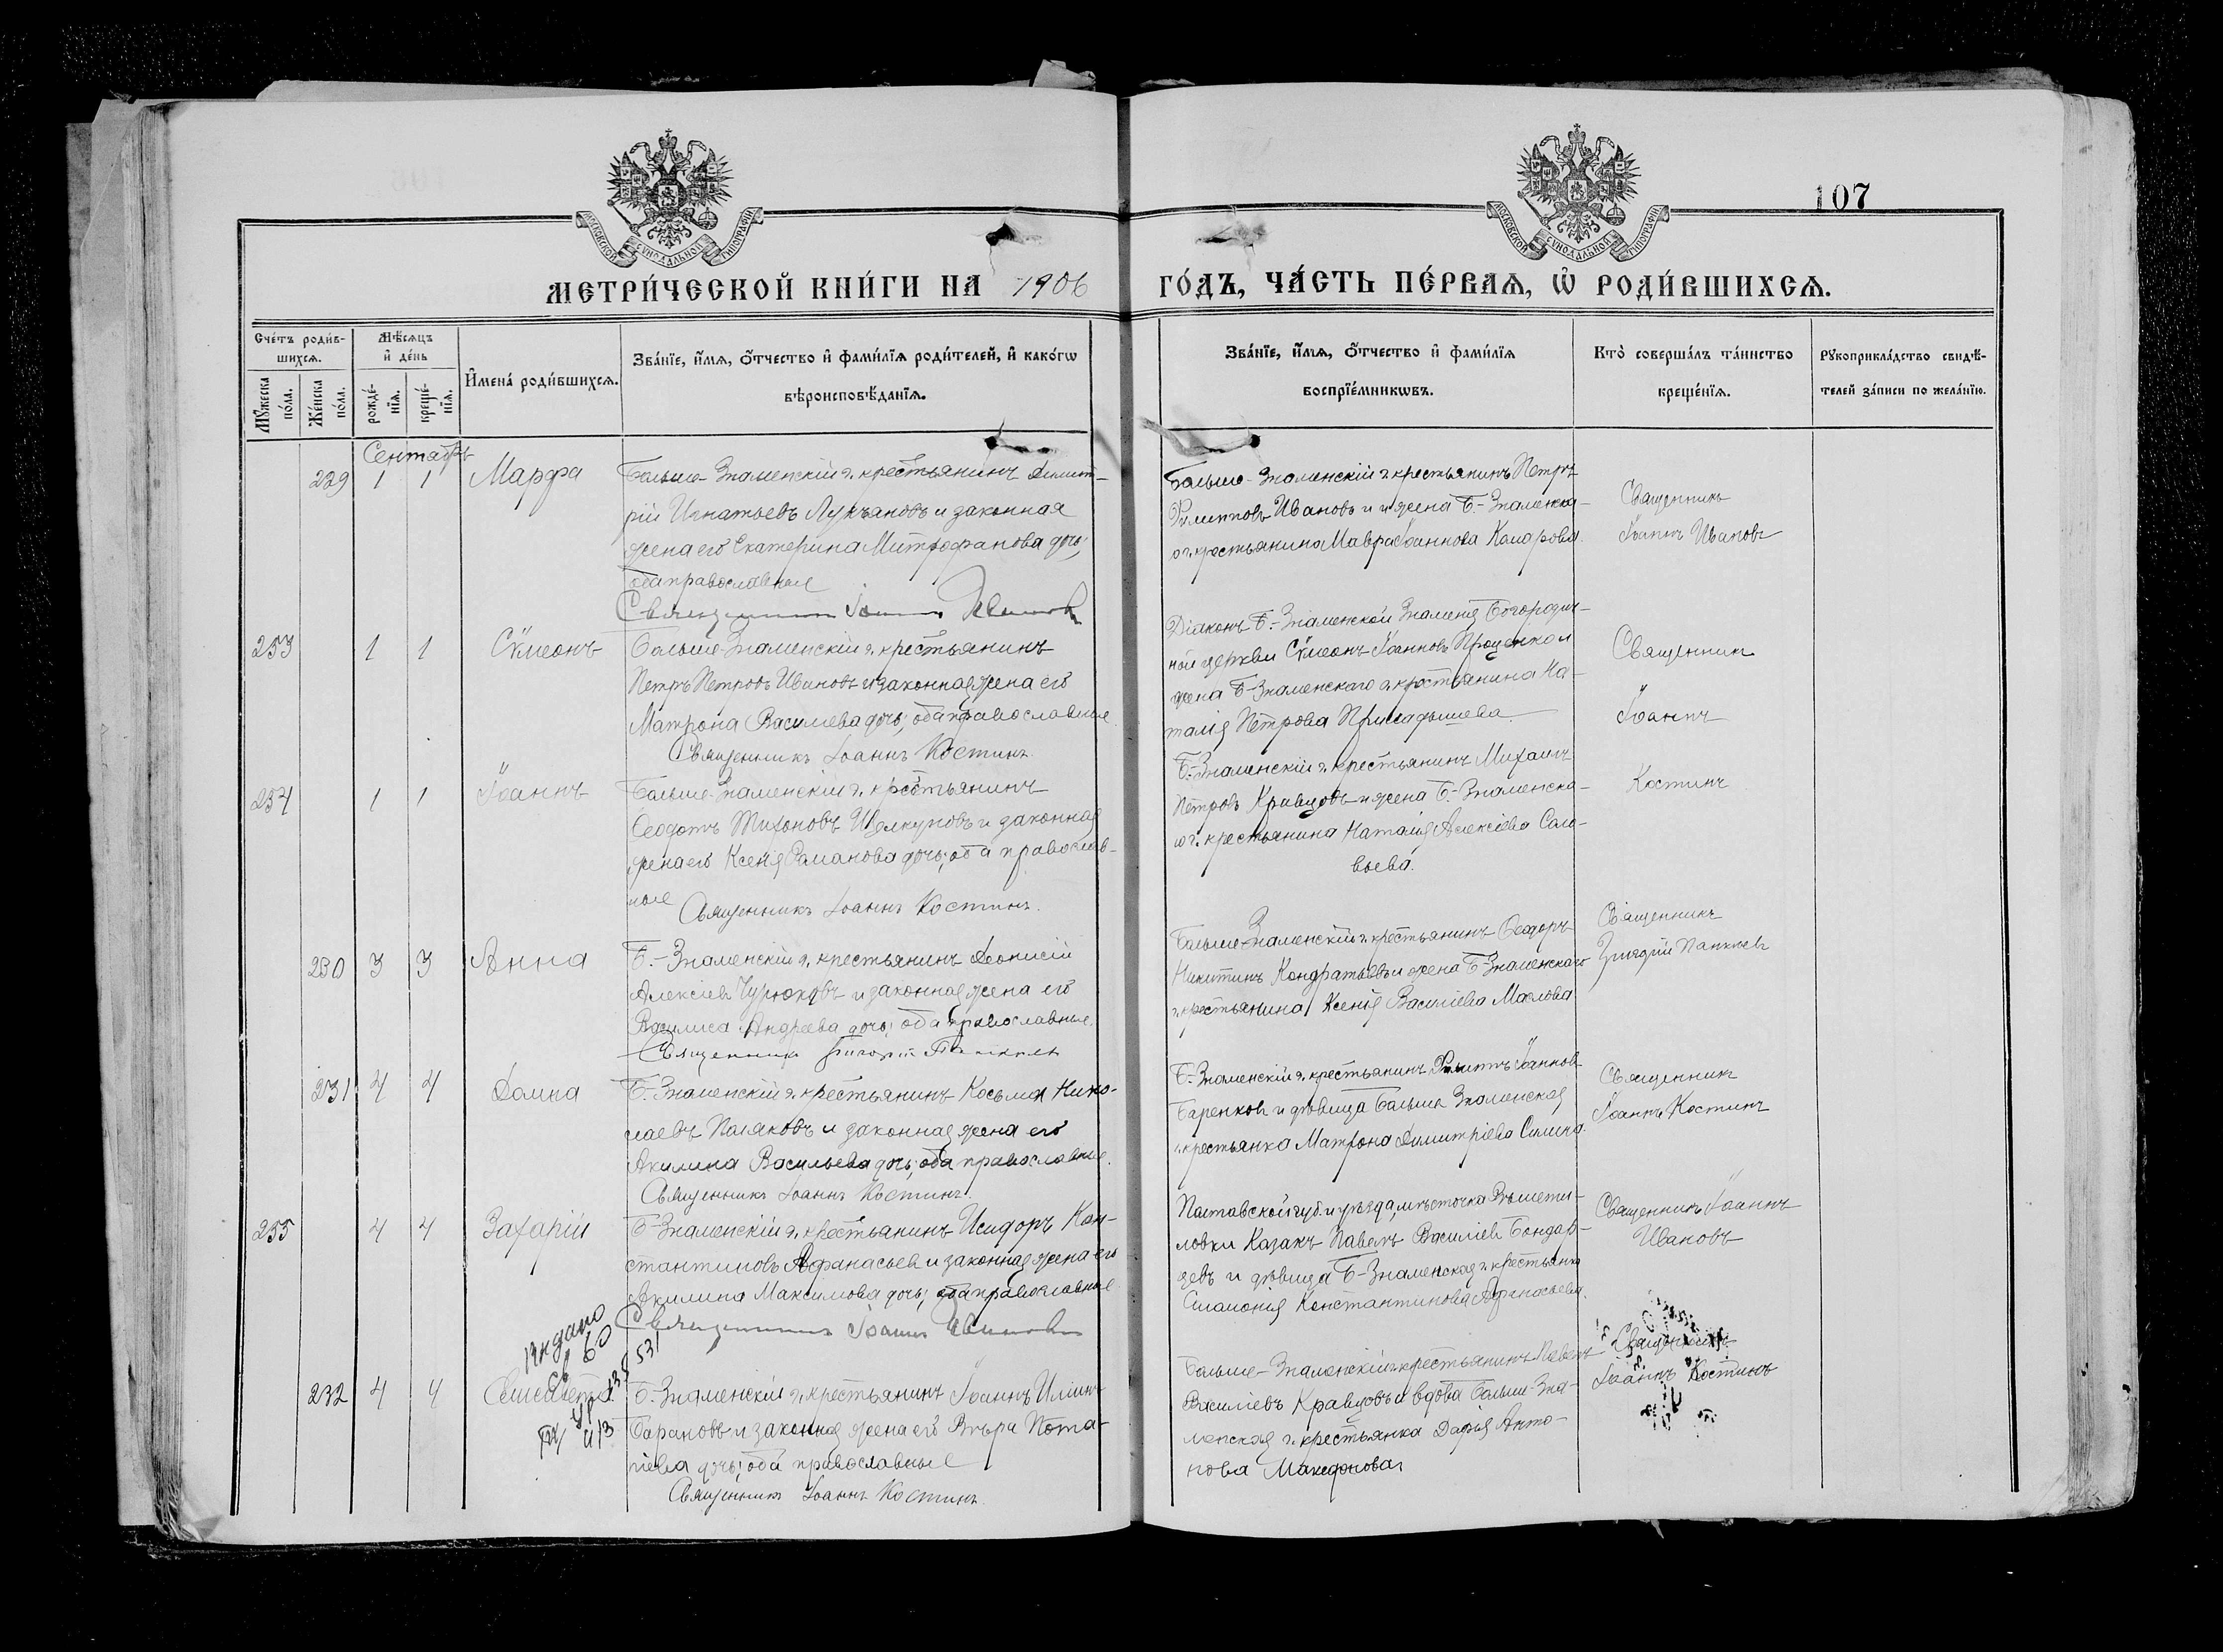 107
МОСКОВСКОЙ СУНОДАЛЬНОЙ ТИПОГРАФІИ
МОСКОВСКОЙ СУНОДАЛЬНОЙ ТИПОГРАФІИ
МЕТРИ́ЧЕСКОЙ КНИ́ГИ НА 1906 ГО́ДЪ, ЧА́СТЬ ПЕ́РВАѦ, Ѡ҆ РОДИ́ВШИХСѦ.
Сче́тъ роди́в-
шихсѧ.
Мѣ́сѧцъ
и҆ де́нь
Мꙋ́жеска
по́ла.
Же́нска
по́ла.
рожде́-
нїѧ.
креще́-
нїѧ.
И҆мена̀ роди́вшихсѧ.
Зва́нїе, и҆́мѧ, ѻ҆́тчество и҆ фами́лїѧ роди́телей, и҆ како́гѡ
вѣроисповѣ́данїѧ.
Зва́нїе, и҆́мѧ, ѻ҆́тчество и҆ фами́лїѧ
воспрїе́мникѡвъ.
Кто̀ соверша́лъ та́инство
креще́нїѧ.
Рꙋкоприкла́дство свидѣ́-
телей за́писи по жела́нїю.
Сентябрь
229 1 1 Марфа
Больше-Знаменскій г. крестьянинъ Димит-
рій Игнатьевъ Лукьяновъ и законная
жена его Екатерина Митрофанова дочь;
оба православные
Священникъ Іоаннъ Ивановъ
Больше-Знаменскій г. крестьянинъ Петръ
Филипповъ Ивановъ и жена Б.-Знаменска-
го г. крестьянина Мавра Іоаннова Комарова
Священникъ
Іоаннъ Ивановъ
253 1 1 Сѵмеонъ
Больше-Знаменскій г. крестьянинъ
Петръ Петровъ Ивановъ и законная жена его
Матрона Василиева дочь; оба православные
Священникъ Іоаннъ Костинъ.
Діаконъ Б.-Знаменской Знаменія Богородич-
ной церкви Сѵмеонъ Іоанновъ Проценко и
жена Б-Знаменскаго г. крестьянина На-
талія Петрова
Священникъ
Іоаннъ
Костинъ
254 1 1 Іоаннъ
Больше-Знаменскій г. крестьянинъ
Ѳеодотъ Тихоновъ Щелкуновъ и законная
жена его Ксенія Романова дочь; оба православ-
ные
Священникъ Іоаннъ Костинъ.
Б.-Знаменскій г. крестьянинъ Михаилъ
Петровъ Кравцовъ и жена Б.-Знаменска-
го г. крестьянина Наталія Алексіева Соло-
вьева.
230 3 3 Анна
Б.-Знаменскій г. крестьянинъ Діонисій
Алексіевъ и законная жена его
Василиса Андреева дочь; оба православные.
Священникъ Григорій
Больше-Знаменскій г. крестьянинъ Ѳеодоръ
Никитинъ Кондратьевъ и жена Б-Знаменскаго
г. крестьянина Ксенія Василіева Маслова
Священникъ
Григорій
231 4 4 Домна
Б.-Знаменскій г. крестьянинъ Косьма Нико-
лаевъ Поляковъ и законная жена его
Акилина Васильева дочь; оба православные.
Священникъ Іоаннъ Костинъ.
Б-Знаменскій г. крестьянинъ Филиппъ Іоанновъ
и дѣвица Больше Знаменская
г. крестьянка Матрона Димитріева Силина.
Священникъ
Іоаннъ Костинъ
255 4 4 Захарій
Б-Знаменскій г. крестьянинъ Исидоръ Кон-
стантиновъ Афанасьевъ и законная жена его
Акилина Максимова дочь; оба православные
Священникъ Іоаннъ Ивановъ
Полтавской губ. и уѣзда, мѣстечка Рѣшети-
ловки Казакъ Павелъ Василіевъ
и дѣвица Б-Знаменская г. крестьянка
Константинова Афанасьева.
Священникъ Іоаннъ
Ивановъ
232 4 4 Елисавета
Б.-Знаменскій г. крестьянинъ Іоаннъ Иліинъ
Барановъ и законная жена его Вѣра Пота-
піева дочь; оба православные
Священникъ Іоаннъ Костинъ.
Больше-Знаменскій г. крестьянинъ Павелъ
Василіевъ Кравцовъ и вдова Больше-Зна-
менская г. крестьянка Дарія Анто-
нова
Священникъ
Іоаннъ Костинъ